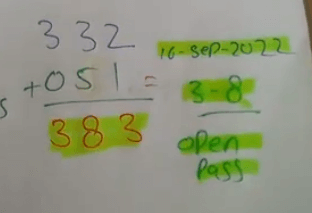 332
+051=
383
16-Sep-2022
3-8
open
Pass